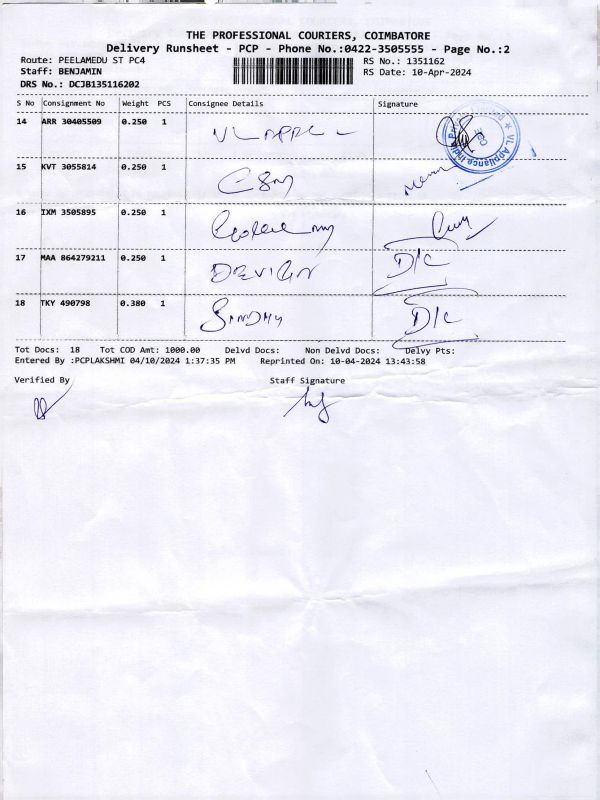 THE PROFESSIONAL COURIERS, COIMBATORE
Delivery Runsheet - PCP - Phone No.:0422-3505555 - Page No.:2
Route: PEELAMEDU ST PC4 RS No.: 1351162
Staff: BENJAMIN RS Date: 10-Apr-2024
DRS No.: DCJB135116202
S No Consignment No Weight PCS Consignee Details Signature
14 ARR 30405509 0.250 1 VL Appliance India Priva
15 KVT 3055814 0.250 1
16 IXM 3505895 0.250 1
17 MAA 864279211 0.250 1 D/C
18 TKY 490798 0.380 1 D/C
Tot Docs: 18 Tot COD Amt: 1000.00 Delvd Docs: Non Delvd Docs: Delvy Pts:
Entered By :PCPLAKSHMI 04/10/2024 1:37:35 PM Reprinted On: 10-04-2024 13:43:58
Verified By Staff Signature